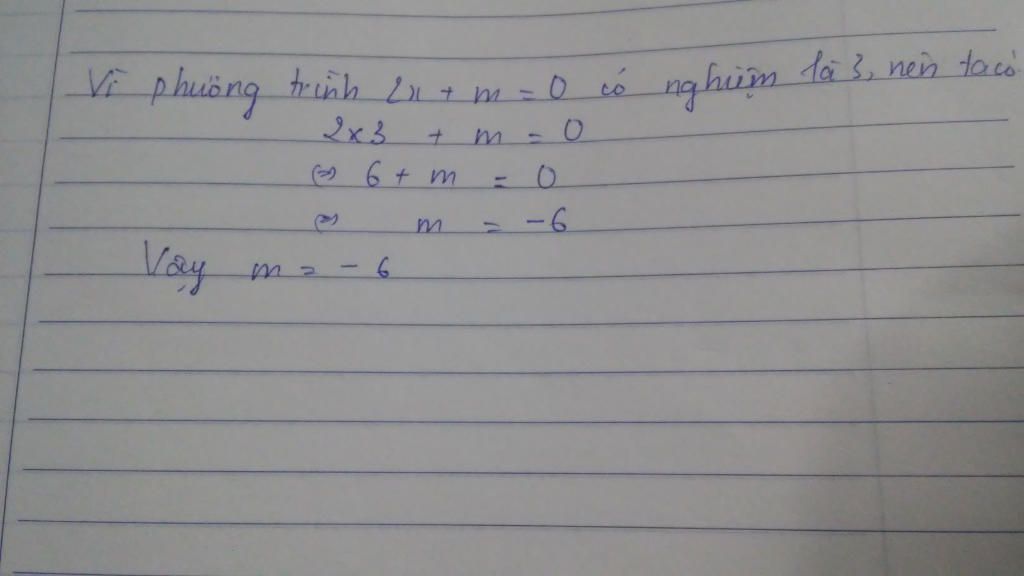 Vì phương trình 2x + m = 0 có nghiệm là 3, nên ta có
2x3 + m = 0
⇔ 6 + m = 0
⇔ m = -6
Vậy m = - 6